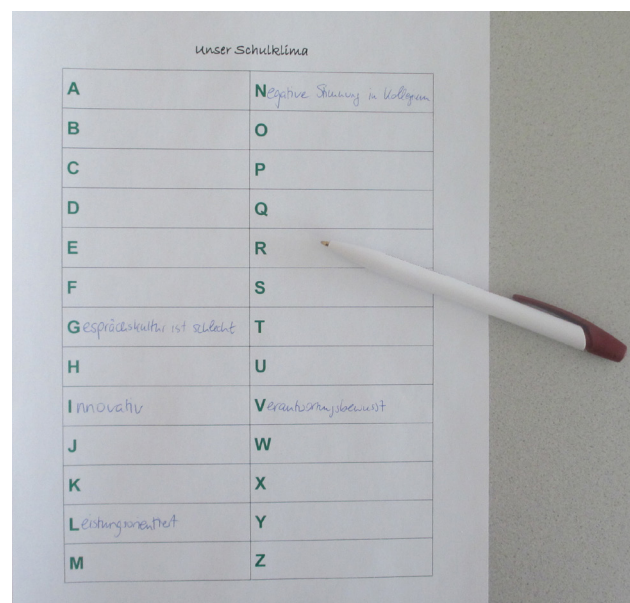 Unser Schulklima
A
Negative Stimmung in Kollegium
B
O
C
P
D
Q
E
R
F
S
Gesprächskultur ist schlecht
T
H
U
Innovativ
Verantwortungsbewusst
J
W
K
X
Leistungsorientiert
Y
M
Z